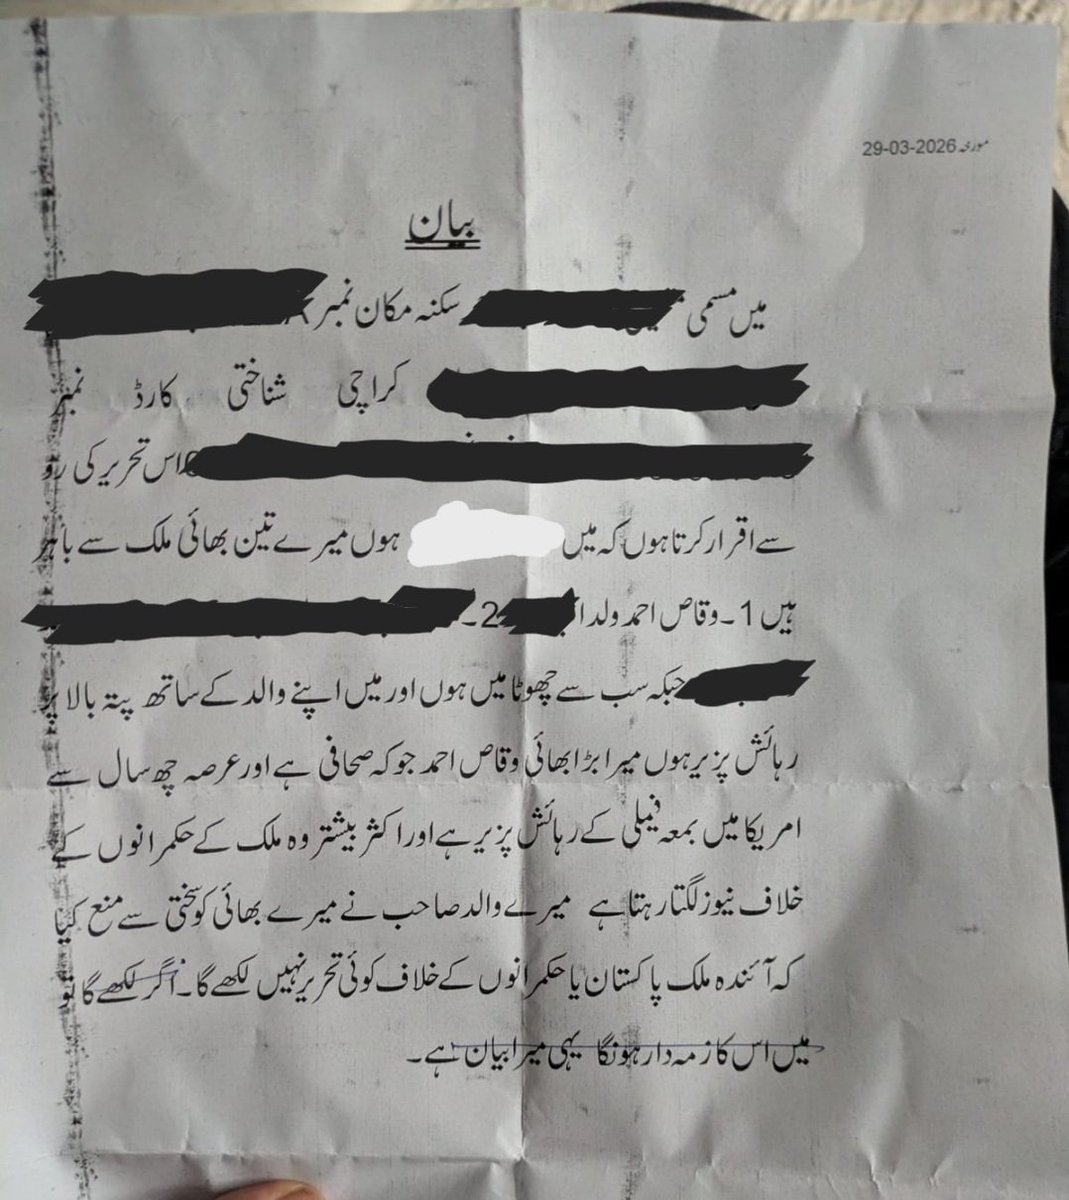 مورخہ 29-03-2026
بیان
میں مسمی سکنہ مکان نمبر
کراچی شناختی کارڈ نمبر
اس تحریر کی رو
سے اقرار کرتا ہوں کہ میں ہوں میرے تین بھائی ملک سے باہر
ہیں 1۔ وقاص احمد ولد 2۔
جبکہ سب سے چھوٹا میں ہوں اور میں اپنے والد کے ساتھ پتہ بالا پر
رہائش پزیر ہوں میرا بڑا بھائی وقاص احمد جو کہ صحافی ہے اور عرصہ چھ سال سے
امریکا میں بمعہ فیملی کے رہائش پزیر ہے اور اکثر بیشتر وہ ملک کے حکمرانوں کے
خلاف نیوز لگتا رہتا ہے میرے والد صاحب نے میرے بھائی کو سختی سے منع کیا
کہ آئندہ ملک پاکستان یا حکمرانوں کے خلاف کوئی تحریر نہیں لکھے گا۔ اگر لکھے گا تو
میں اس کا زمہ دار ہونگا یہی میرا بیان ہے۔